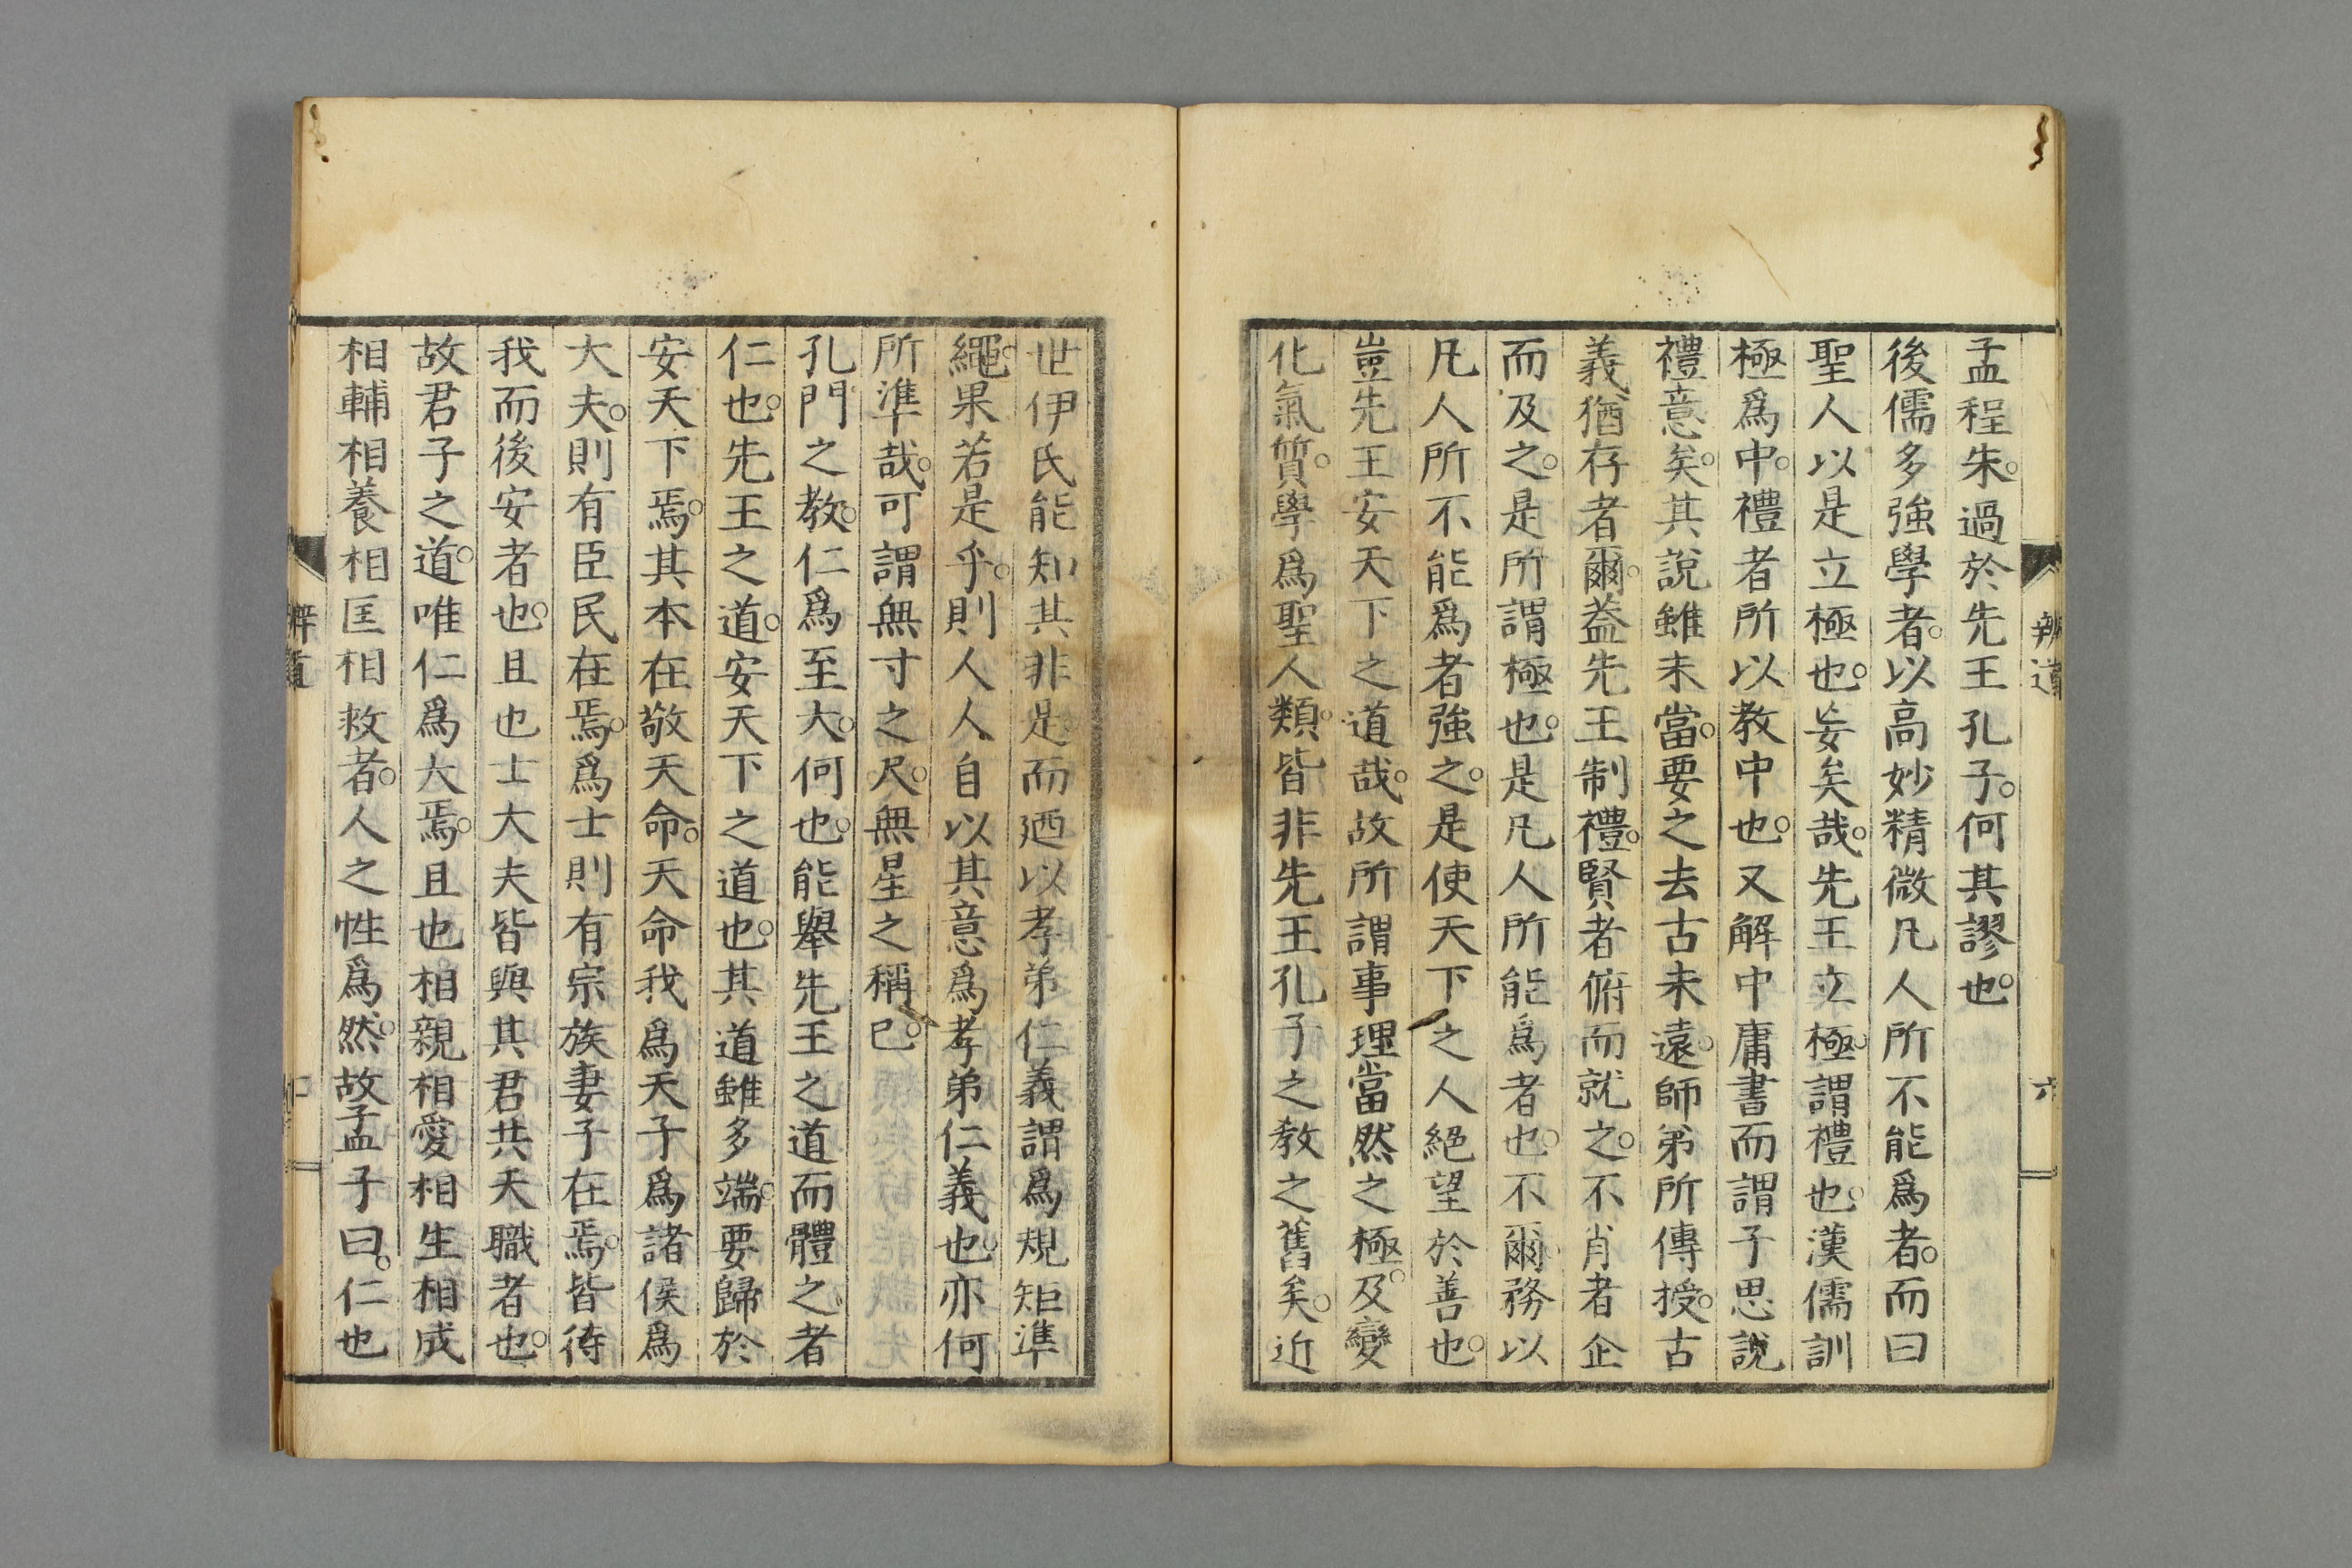 辨道
六
孟程朱。過於先王孔子。何其謬也。
後儒多強學者。以高妙精微凡人所不能爲者。而曰
聖人以是立極也。妄矣哉。先王立極。謂禮也。漢儒訓
極爲中。禮者所以教中也。又解中庸書而謂子思說
禮意矣。其說雖未當。要之去古未遠。師弟所傳授。古
義猶存者爾。葢先王制禮。賢者俯而就之。不肖者企
而及之。是所謂極也。是凡人所能爲者也。不爾。務以
凡人所不能爲者強之。是使天下之人絕望於善也。
豈先王安天下之道哉。故所謂事理當然之極。及變
化氣質。學爲聖人類。皆非先王孔子之教之舊矣。近
世伊氏能知其非是而廼以孝弟仁義謂爲規矩準
繩。果若是乎。則人人自以其意爲孝弟仁義也。亦何
所準哉。可謂無寸之尺。無星之稱已。
孔門之教。仁爲至大。何也。能舉先王之道而體之者
仁也。先王之道。安天下之道也。其道雖多端。要歸於
安天下焉。其本在敬天命。天命我爲天子爲諸侯爲
大夫。則有臣民在焉。爲士則有宗族妻子在焉。皆待
我而後安者也。且也士大夫皆與其君共天職者也。
故君子之道。唯仁爲大焉。且也相親相愛相生相成
相輔相養相匡相救者。人之性爲然。故孟子曰。仁也
辨道